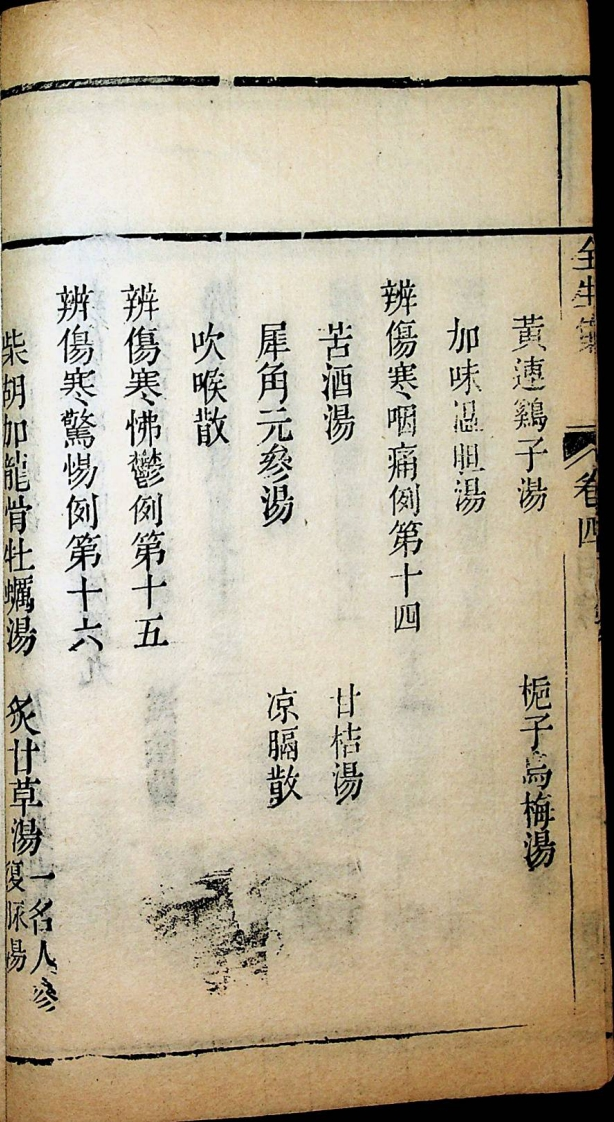 全生
卷四
黃連鷄子湯 梔子烏梅湯
加味温胆湯
辨傷寒咽痛例第十四
苦酒湯 甘桔湯
犀角元參湯 凉膈散
吹喉散
辨傷寒怫鬱例第十五
辨傷寒驚惕例第十六
柴胡加龍骨牡蠣湯 炙甘草湯 一名人參
復脉湯